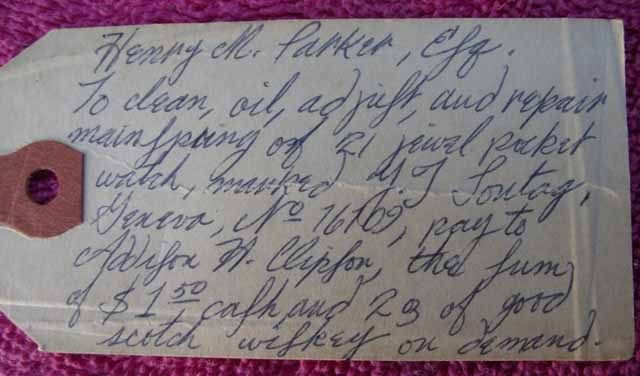 Henry M. Parker, Esq.
To clean, oil, adjust, and repair
mainspring of 21 jewel pocket
watch, marked Sontag,
Geneva, No pay to
Addison W. Clipson, the sum
of $1.50 cash and 2 of good
scotch wiskey on demand.